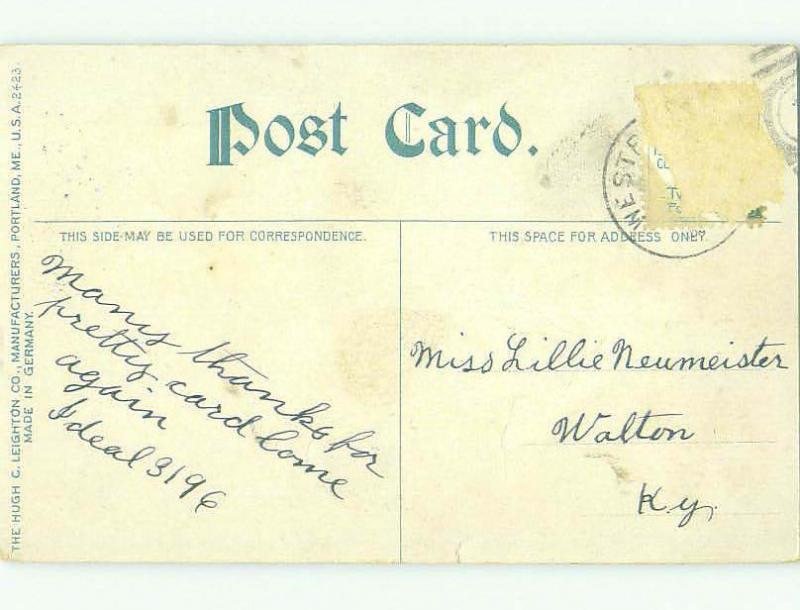 Post Card.
THIS SIDE MAY BE USED FOR CORRESPONDENCE.
THIS SPACE FOR ADDRESS ONLY.
THE HUGH C. LEIGHTON CO., MANUFACTURERS, PORTLAND, ME., U.S.A. 2423.
MADE IN GERMANY.
Many thanks for
pretty card Come
again
Ideal 3196
Miss Lillie Neumeister
Walton
Ky.
WEST